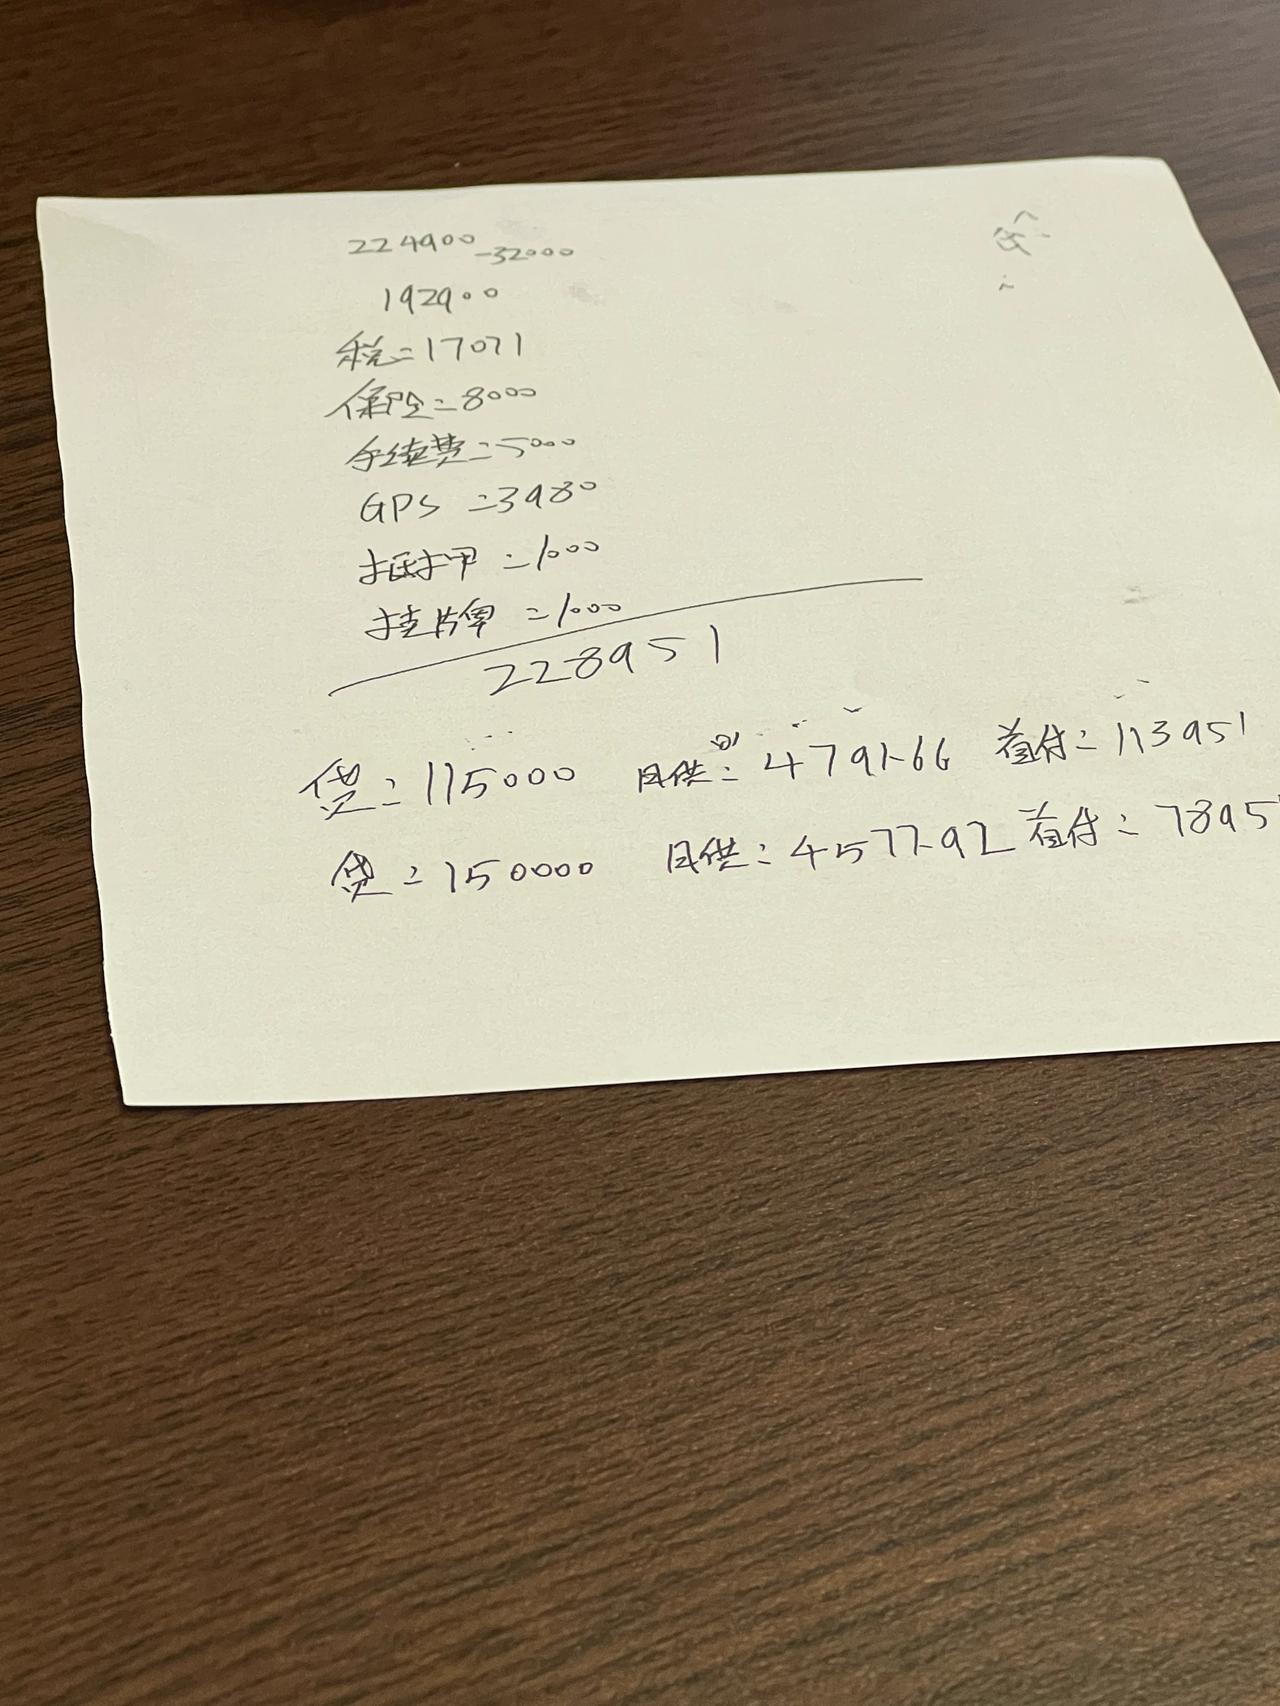 224900 -32000
192900
税=17071
保险=8000
手续费=5000
GPS=3980
抵押=1000
挂牌=1000
228951
贷=115000 月供:4791.66 首付=113951
贷=150000 月供:4577.92 首付=7895